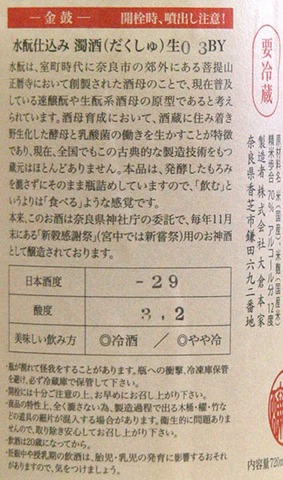 ―金鼓―　開栓時、噴出し注意！
水酛仕込み 濁酒（だくしゅ）生０３BY
水酛は、室町時代に奈良市の郊外にある菩提山
正暦寺において創製された酒母のことで、現在普及
している速醸酛や生酛系酒母の原型であると考え
られています。酒母育成において、酒蔵に住み着き
野生化した酵母と乳酸菌の働きを生かすことが特徴
であり、現在、全国でもこの古典的な製造技術をもつ
蔵元はほとんどありません。本品は、発酵したもろみ
を漉さずにそのまま瓶詰めしていますので、「飲む」と
いうよりは「食べる」ような感覚です。
本来、このお酒は奈良県神社庁の委託で、毎年11月
末にある「新穀感謝祭」（宮中では新嘗祭）用のお神酒
として醸造されております。
日本酒度　－２９
酸度　３．２
美味しい飲み方　◎冷酒　／　◎やや冷
・瓶が割れて怪我をすることがあります。瓶への衝撃、冷凍庫保管
を避け、必ず冷蔵庫で保管して下さい。
・開栓には十分ご注意の上、お早めにお召し上がり下さい。
・商品の特性上、全く漉さない為、製造過程で出る木樋・櫂・竹な
どの道具の細片が混入する場合があります。衛生的に問題あり
ませんので、取り除き安心してお召し上がり下さい。
・飲酒は20歳になってから。
・妊娠中や授乳期の飲酒は、胎児・乳児の発育に影響するおそれ
がありますので、気をつけましょう。
要冷蔵
原材料名 米（国産）、米麹（国産米）
精米歩合 70％　アルコール分 12度
製造者 株式会社大倉本家
奈良県香芝市鎌田六九二番地
内容量720ml